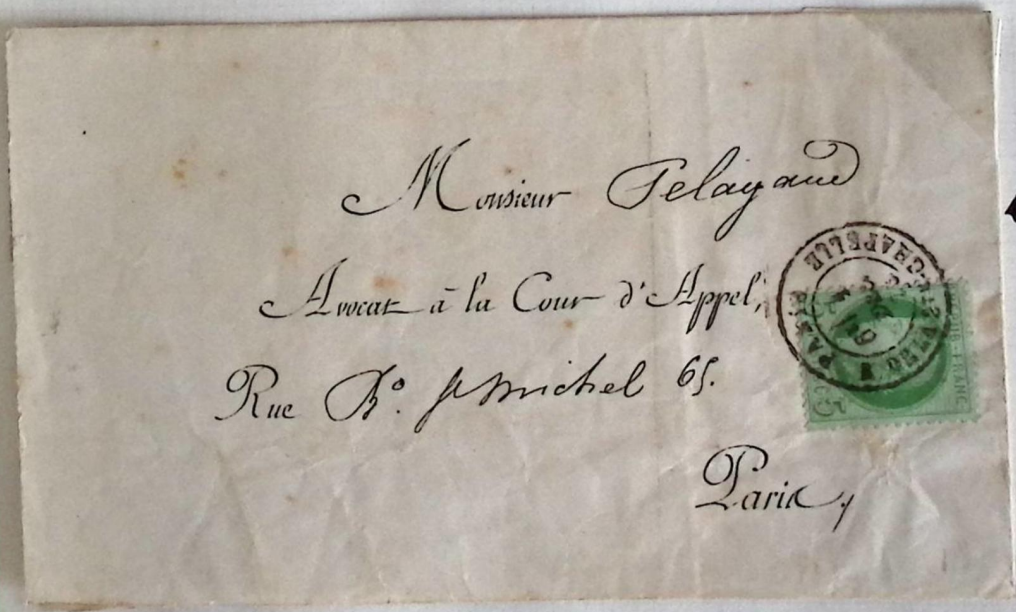 Monsieur Pelagaud
Avocat à la Cour d'Appel,
Rue Bd. St Michel 65.
Paris,
PARIS
CHAPELLE